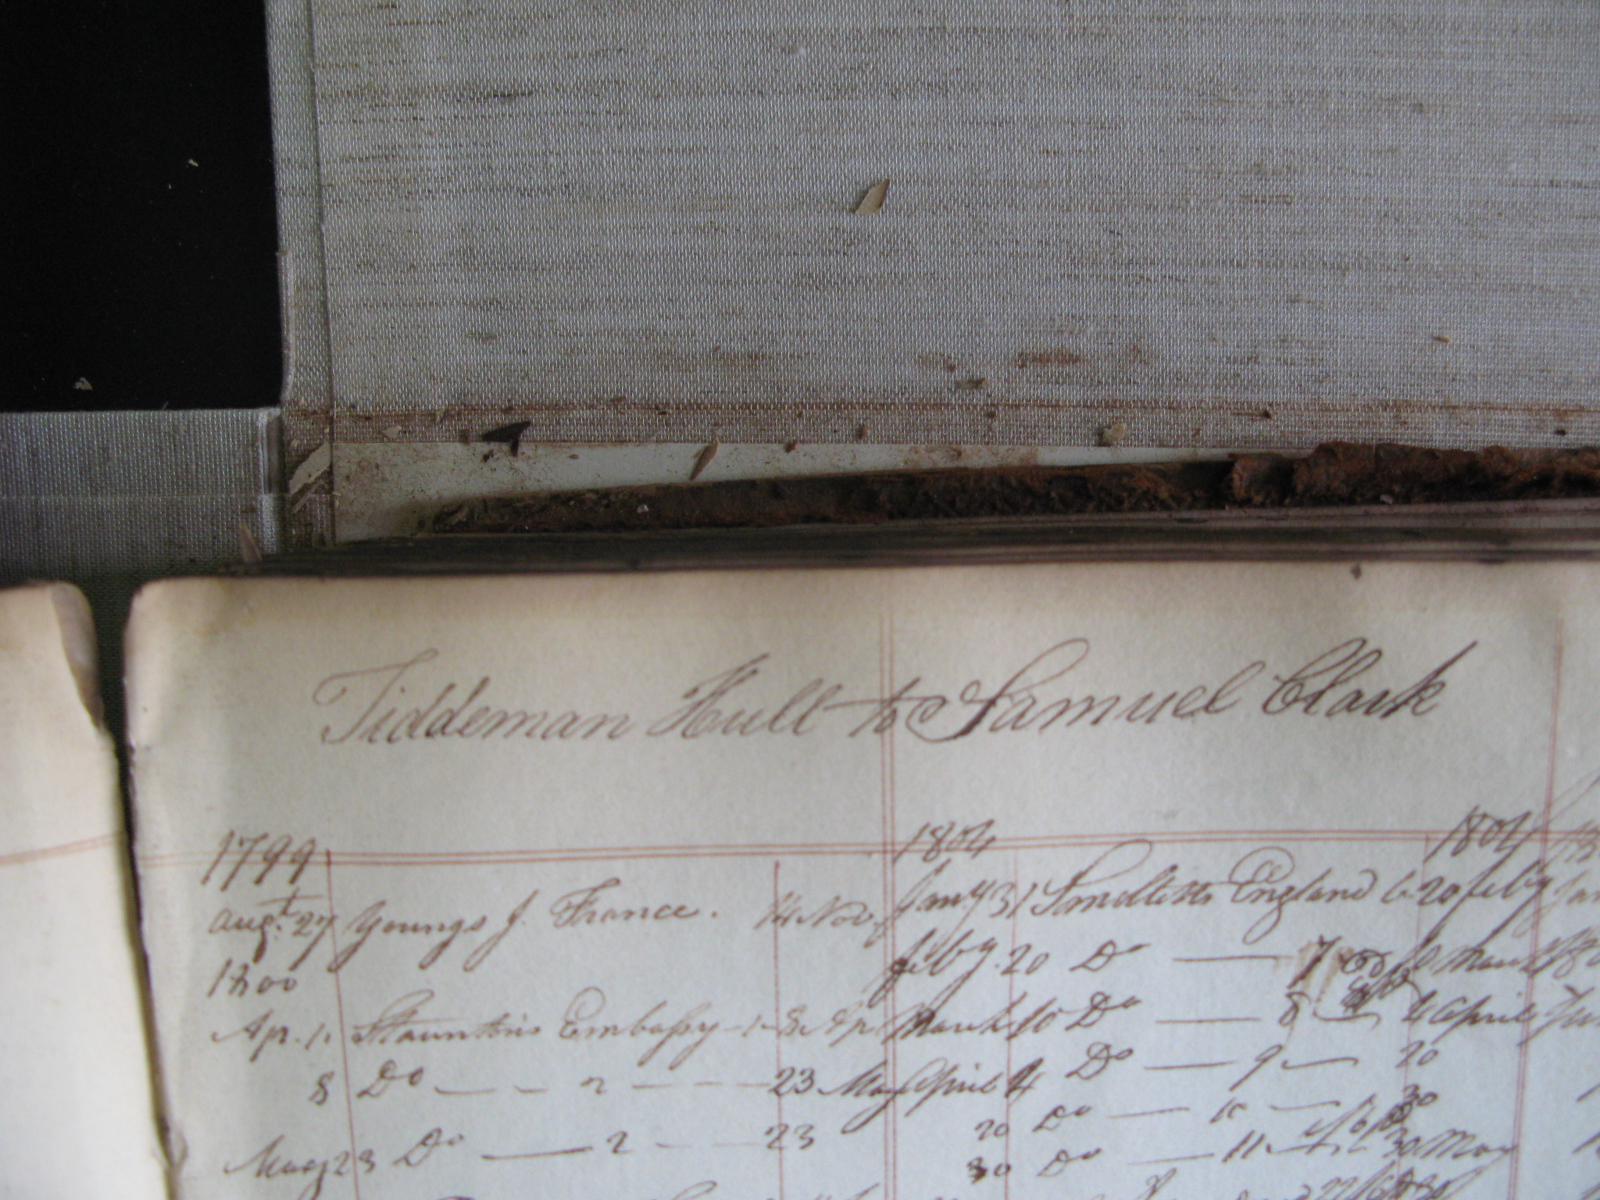 Tiddeman Hull to Samuel Clark
1799
augt. 27 Youngs J. France. 14 Nov
1800
Ap. 1. Stauntons Embassy 1 8 Ap
8 Do — — 2 — — 23 May
May 23 Do — 2 — 23
1804 1804
Jany 31 England 6 20 feby
feby. 20 Do — 7 March
March 10 Do — 8 — 4 April
April 4 Do — 9 — 20
20 Do — 10 — 30
30 Do — 11 30 May